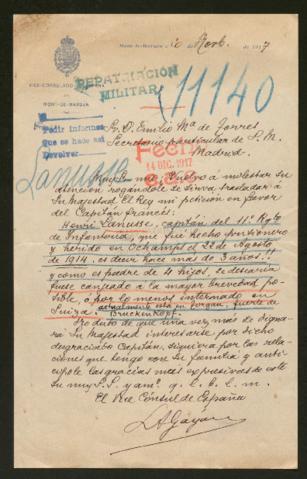 Mont-de-Marsan 10 Novb. 1917
VICE-CONSULADO
MONT-DE-MARSAN
REPATRIACIÓN
MILITAR
11140
Pedir informes
que se hace así
Devolver
Sr. D. Emilio Mª de Torres
Secretario particular de S. M.
Madrid.
Fecha
14 DIC. 1917
Lanusse
Muy Sr. mío: Vuelvo a molestar su
atención rogándole se sirva trasladar a
Su Majestad El Rey mi petición en favor
del Capitán francés:
Henri Lanusse, capitán del 11º Rgto
de Infantería, que fué hecho prisionero
y herido en Ochamps el 22 de Agosto
de 1914, es decir hace mas de 3 años!!
y como es padre de 4 hijos, se desearía
fuese canjeado a la mayor brevedad po-
sible, o por lo menos internado en
Suiza. actualmente está en Torgau, fuerte de
Bruckenkopf.
No dudo de que una vez mas se digna-
rá Su Majestad interesarse por dicho
desgraciado Capitán, siquiera por las rela-
ciones que tengo con su familia y antici-
pole las gracias mas expresivas de este
su muy S. S. y amº q. l. b. l. m.
El Vice Cónsul de España
L. A. Gayan